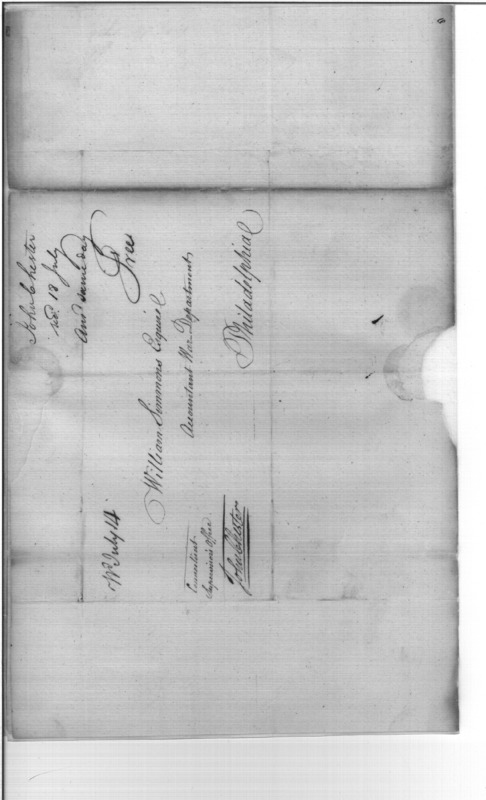 John Chester
recd. 18 July
and same day
Free
Wr. July 14
William Simmons Esquire
Accountant War Department
Philadelphia
Connecticut
Supervisor's Office
John Chester
8